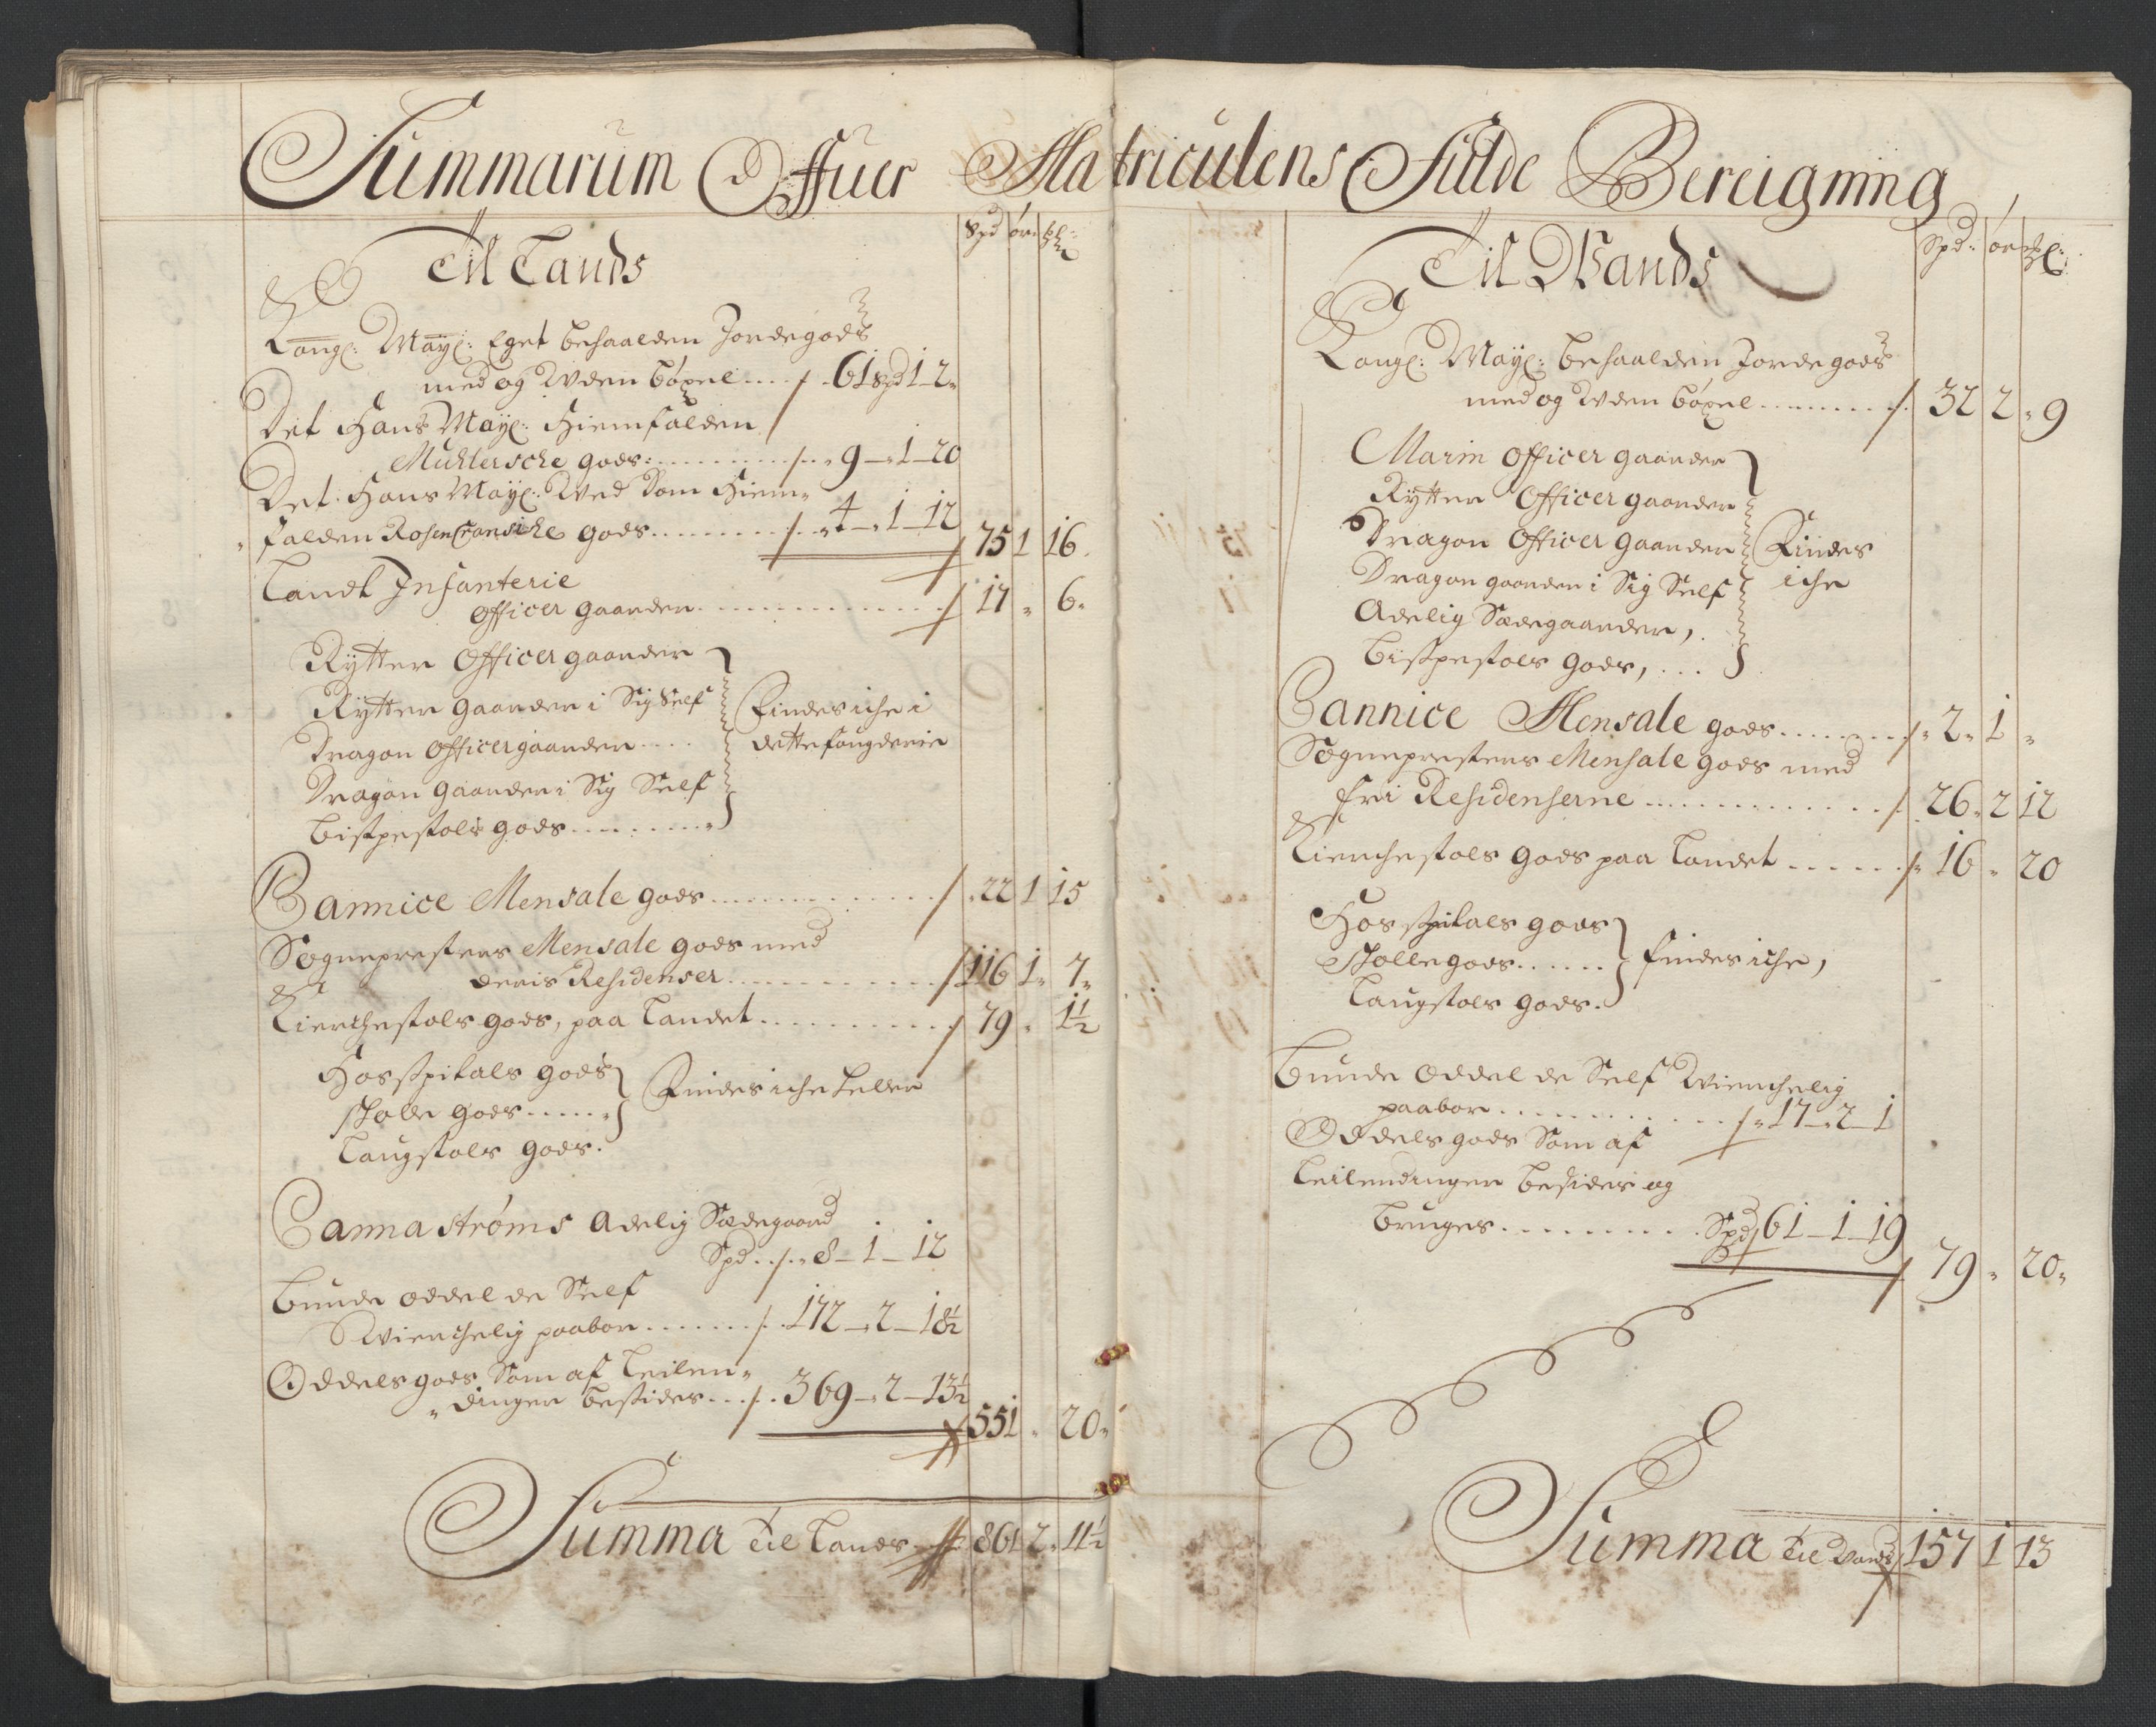 Summarum Offuer Matriculens Fulde Bereigning
Spd ör
Til Lands
Kongl: Mayl: Eget behaalden Jordegods
med og Uden böxel . . . . 61 Spd 1 - 2 "
Det Hans Mayl: Hiemfalden
Muhlersche gods: . . . . . . . . " 9 - " 1 - 20
Det Hans Mayl: Ved Dom Hiem "
falden Rosencransiche gods . . . . . . . . " 4 - " 1 - 12
75 1 16
Landt Infanterie
Officer gaarder . . . . . . . . 17 " 6 "
Rytter Officer gaarder
Rytter gaarder i Sig Self
Dragon Officer gaarder . . . .
Dragon gaarder i Sig Self
Bispestols gods . . . . . . . .
Findes iche i
dette fougderie
Cannice Mensale gods . . . . . . . . " 22 1 15
Sogneprestens Mensale gods med
deris Residenser . . . . . . . . 116 1 " 7 "
Kierchestols gods, paa Landet . . . . . . . . 79 " 1½
Hosspitals gods
Skolle gods . . . . . "
Laugstols gods.
Findes iche heller
Cannaströms Adelig Sædegaard
Spd . . " 8 - 1 - 12
Bunde oddel de Self
Wierchelig paaboer . . . . . . . 172 - " 2 - 18½
Oddels gods Som af Leilen "
" dinger besides . . . . 369 - " 2 - 13½
551 " 20 "
Summa til Lands 861 2 " 11½
Spd: ör
Til Wands
Kongl: Mayl: behaalden Jordegods
med og Uden böxel . . . . . . . . 32 2 " 9
Marin Officer gaarder
Rytter Officer gaarder
Dragon Officer gaarder
Dragon gaarder i Sig Self
Adelig Sædegaarder, .
Bispestols gods, . . .
Findes
iche
Cannice Mensale gods . . . . . . . . " 2 " 1 "
Sogneprestens Mensale gods med
fri Residenserne . . . . . . . . 26 " 2 12
Kierchestols gods paa Landet . . . . . . " 16 " 20
Hosspitals gods
Skolle gods . . . . . .
Laugstols gods .
findes iche,
Bunde oddel de Self Wierchelig
paaboer . . . . . . . . " 17 - " 2 - 1
Oddels gods Som af
Leilendinger besider og
bruges . . . . . . . . . Spd 61 - 1 - 19
79 " 20 "
Summa til Vands 157 1 13